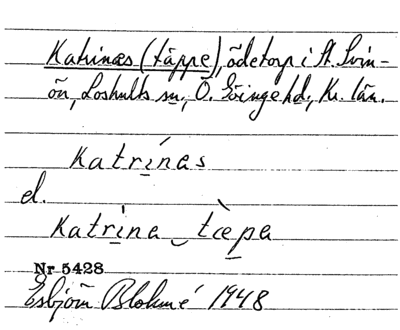 Katrinas (täppe), ödetorp i St. Svin-
ön, Loshults sn, Ö. Göinge hd, Kr. län.
Katrínas
el.
Katrìna ‿ tæ̀pa
Nr 5428
Esbjörn Blohmé 1948